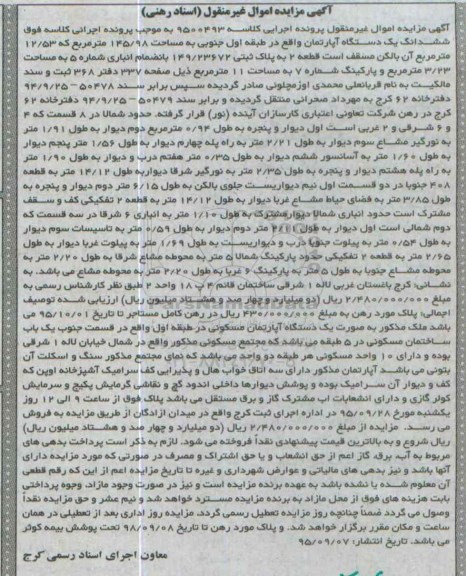 آگهی مزایده اموال غیرمنقول (اسناد رهنی)
آگهی مزایده اموال غیرمنقول پرونده اجرایی کلاسه ۹۵۰۰۴۹۳ به موجب پرونده اجرائی کلاسه فوق
ششدانگ یک دستگاه آپارتمان واقع در طبقه اول جنوبی به مساحت ۱۴۵/۹۸ مترمربع که ۱۲/۵۳
مترمربع آن بالکن مسقف است قطعه ۲ به پلاک ثبتی ۱۴۹/۲۳۶۷۲ بانضمام انباری شماره ۵ به مساحت
۳/۲۳ مترمربع و پارکینگ شماره ۷ به مساحت ۱۱ مترمربع ذیل صفحه ۳۳۷ دفتر ۳۶۸ ثبت و سند
مالکیت به نام قربانعلی محمدی اوزمچلونی صادر گردیده سپس برابر سند ۵۰۴۷۸ – ۹۴/۹/۲۵
دفترخانه ۶۲ کرج به مهرداد صحرانی منتقل گردیده و برابر سند ۵۰۴۷۹ – ۹۴/۹/۲۵ دفترخانه ۶۲
کرج در رهن شرکت تعاونی اعتباری کارسازان آینده (نور) قرار گرفته. حدود شمالا در ۸ قسمت که ۴
و ۶ شرقی و ۲ غربی است اول دیوار و پنجره به طول ۰/۹۴ مترمربع دوم دیوار به طول ۱/۹۱ متر
به نورگیر مشاع سوم دیوار به طول ۲/۲۱ متر به راه پله چهارم دیوار به طول ۱/۵۶ متر پنجم دیوار
به طول ۱/۶۰ متر به آسانسور ششم دیوار به طول ۰/۳۵ متر هفتم درب و دیوار به طول ۱/۹۰ متر
به راه پله هشتم دیوار و پنجره به طول ۲/۳۵ متر به نورگیر شرقا دیوار به طول ۱۴/۱۲ متر به قطعه
۴۰۸ جنوبا در دو قسمت اول نیم دیواریست جلوی بالکن به طول ۶/۱۵ متر دوم دیوار و پنجره به
طول ۳/۸۵ متر به فضای حیاط مشاع غربا دیوار به طول ۱۴/۱۲ متر به قطعه ۲ تفکیکی کف و سقف
مشترک است حدود انباری شمالا دیوار مشترک به طول ۱/۱۰ متر به انباری ۶ شرقا در سه قسمت که
دوم شمالی است اول دیوار به طول ۲/۱۰ متر دوم دیوار به طول ۰/۵۹ متر به تاسیسات سوم دیوار
به طول ۰/۵۴ متر به پیلوت جنوبا درب و دیواریست به طول ۱/۶۹ متر به پیلوت غربا دیوار به طول
۲/۶۵ متر به قطعه ۲ تفکیکی حدود پارکینگ شمالا ۵ متر به محوطه مشاع شرقا به طول ۲/۲۰ متر به
محوطه مشاع جنوبا به طول ۵ متر به پارکینگ ۶ غربا به طول ۲/۲۰ متر به محوطه مشاع می باشد. به
نشانی: کرج باغستان غربی لاله ۱ شرقی ساختمان قائم ۴ پ ۱۸ واحد ۲ طبق نظر کارشناس رسمی به
مبلغ ۲/۴۸۰/۰۰۰/۰۰۰ ریال (دو میلیارد و چهار صد و هشتاد میلیون ریال) ارزیابی شده توصیف
اجمالی: پلاک مورد رهن به مبلغ ۴۳۰/۰۰۰/۰۰۰ ریال در رهن کامل مستاجر تا تاریخ ۹۵/۱۰/۰۱ می
باشد ملک مذکور به صورت یک دستگاه آپارتمان مسکونی در طبقه اول واقع در قسمت جنوب یک باب
ساختمان مسکونی در ۵ طبقه می باشد که مجتمع مسکونی مذکور واقع در شمال خیابان لاله ۱ شرقی
بوده و دارای ۱۰ واحد مسکونی هر طبقه دو واحد می باشد که نمای مجتمع مذکور سنگ و اسکلت آن
بتونی می باشد آپارتمان مذکور دارای سه اتاق خواب هال و پذیرایی کف سرامیک آشپزخانه اوپن که
کف و دیوار آن سرامیک بوده و پوشش دیوارها داخلی اندود گچ و نقاشی گرمایش پکیج و سرمایش
کولر گازی و دارای انشعابات آب مشترک گاز و برق مستقل می باشد پلاک فوق از ساعت ۹ الی ۱۲ روز
یکشنبه مورخ ۹۵/۰۹/۲۸ در اداره اجرای ثبت کرج واقع در میدان آزادگان از طریق مزایده به فروش
می رسد. مزایده از مبلغ ۲/۴۸۰/۰۰۰/۰۰۰ ریال (دو میلیارد و چهار صد و هشتاد میلیون ریال)
ریال شروع و به بالاترین قیمت پیشنهادی نقداً فروخته می شود. لازم به ذکر است پرداخت بدهی های
مربوط به آب، برق، گاز اعم از حق انشعاب و یا حق اشتراک و مصرف در صورتی که مورد مزایده دارای
آنها باشد و نیز بدهی های مالیاتی و عوارض شهرداری و غیره تا تاریخ مزایده اعم از این که رقم قطعی
آن معلوم شده یا نشده باشد به عهده برنده مزایده است و نیز در صورت وجود مازاد، وجوه پرداختی
بابت هزینه های فوق از محل مازاد به برنده مزایده مسترد خواهد شد و نیم عشر و حق مزایده نقداً
وصول می گردد ضمناً چنانچه روز مزایده تعطیل رسمی گردد، مزایده روز اداری بعد از تعطیلی در همان
ساعت و مکان مقرر برگزار خواهد شد. و پلاک مورد رهن تا تاریخ ۹۸/۰۹/۰۸ تحت پوشش بیمه کوثر
می باشد. تاریخ انتشار: ۹۵/۰۹/۰۷
معاون اجرای اسناد رسمی کرج